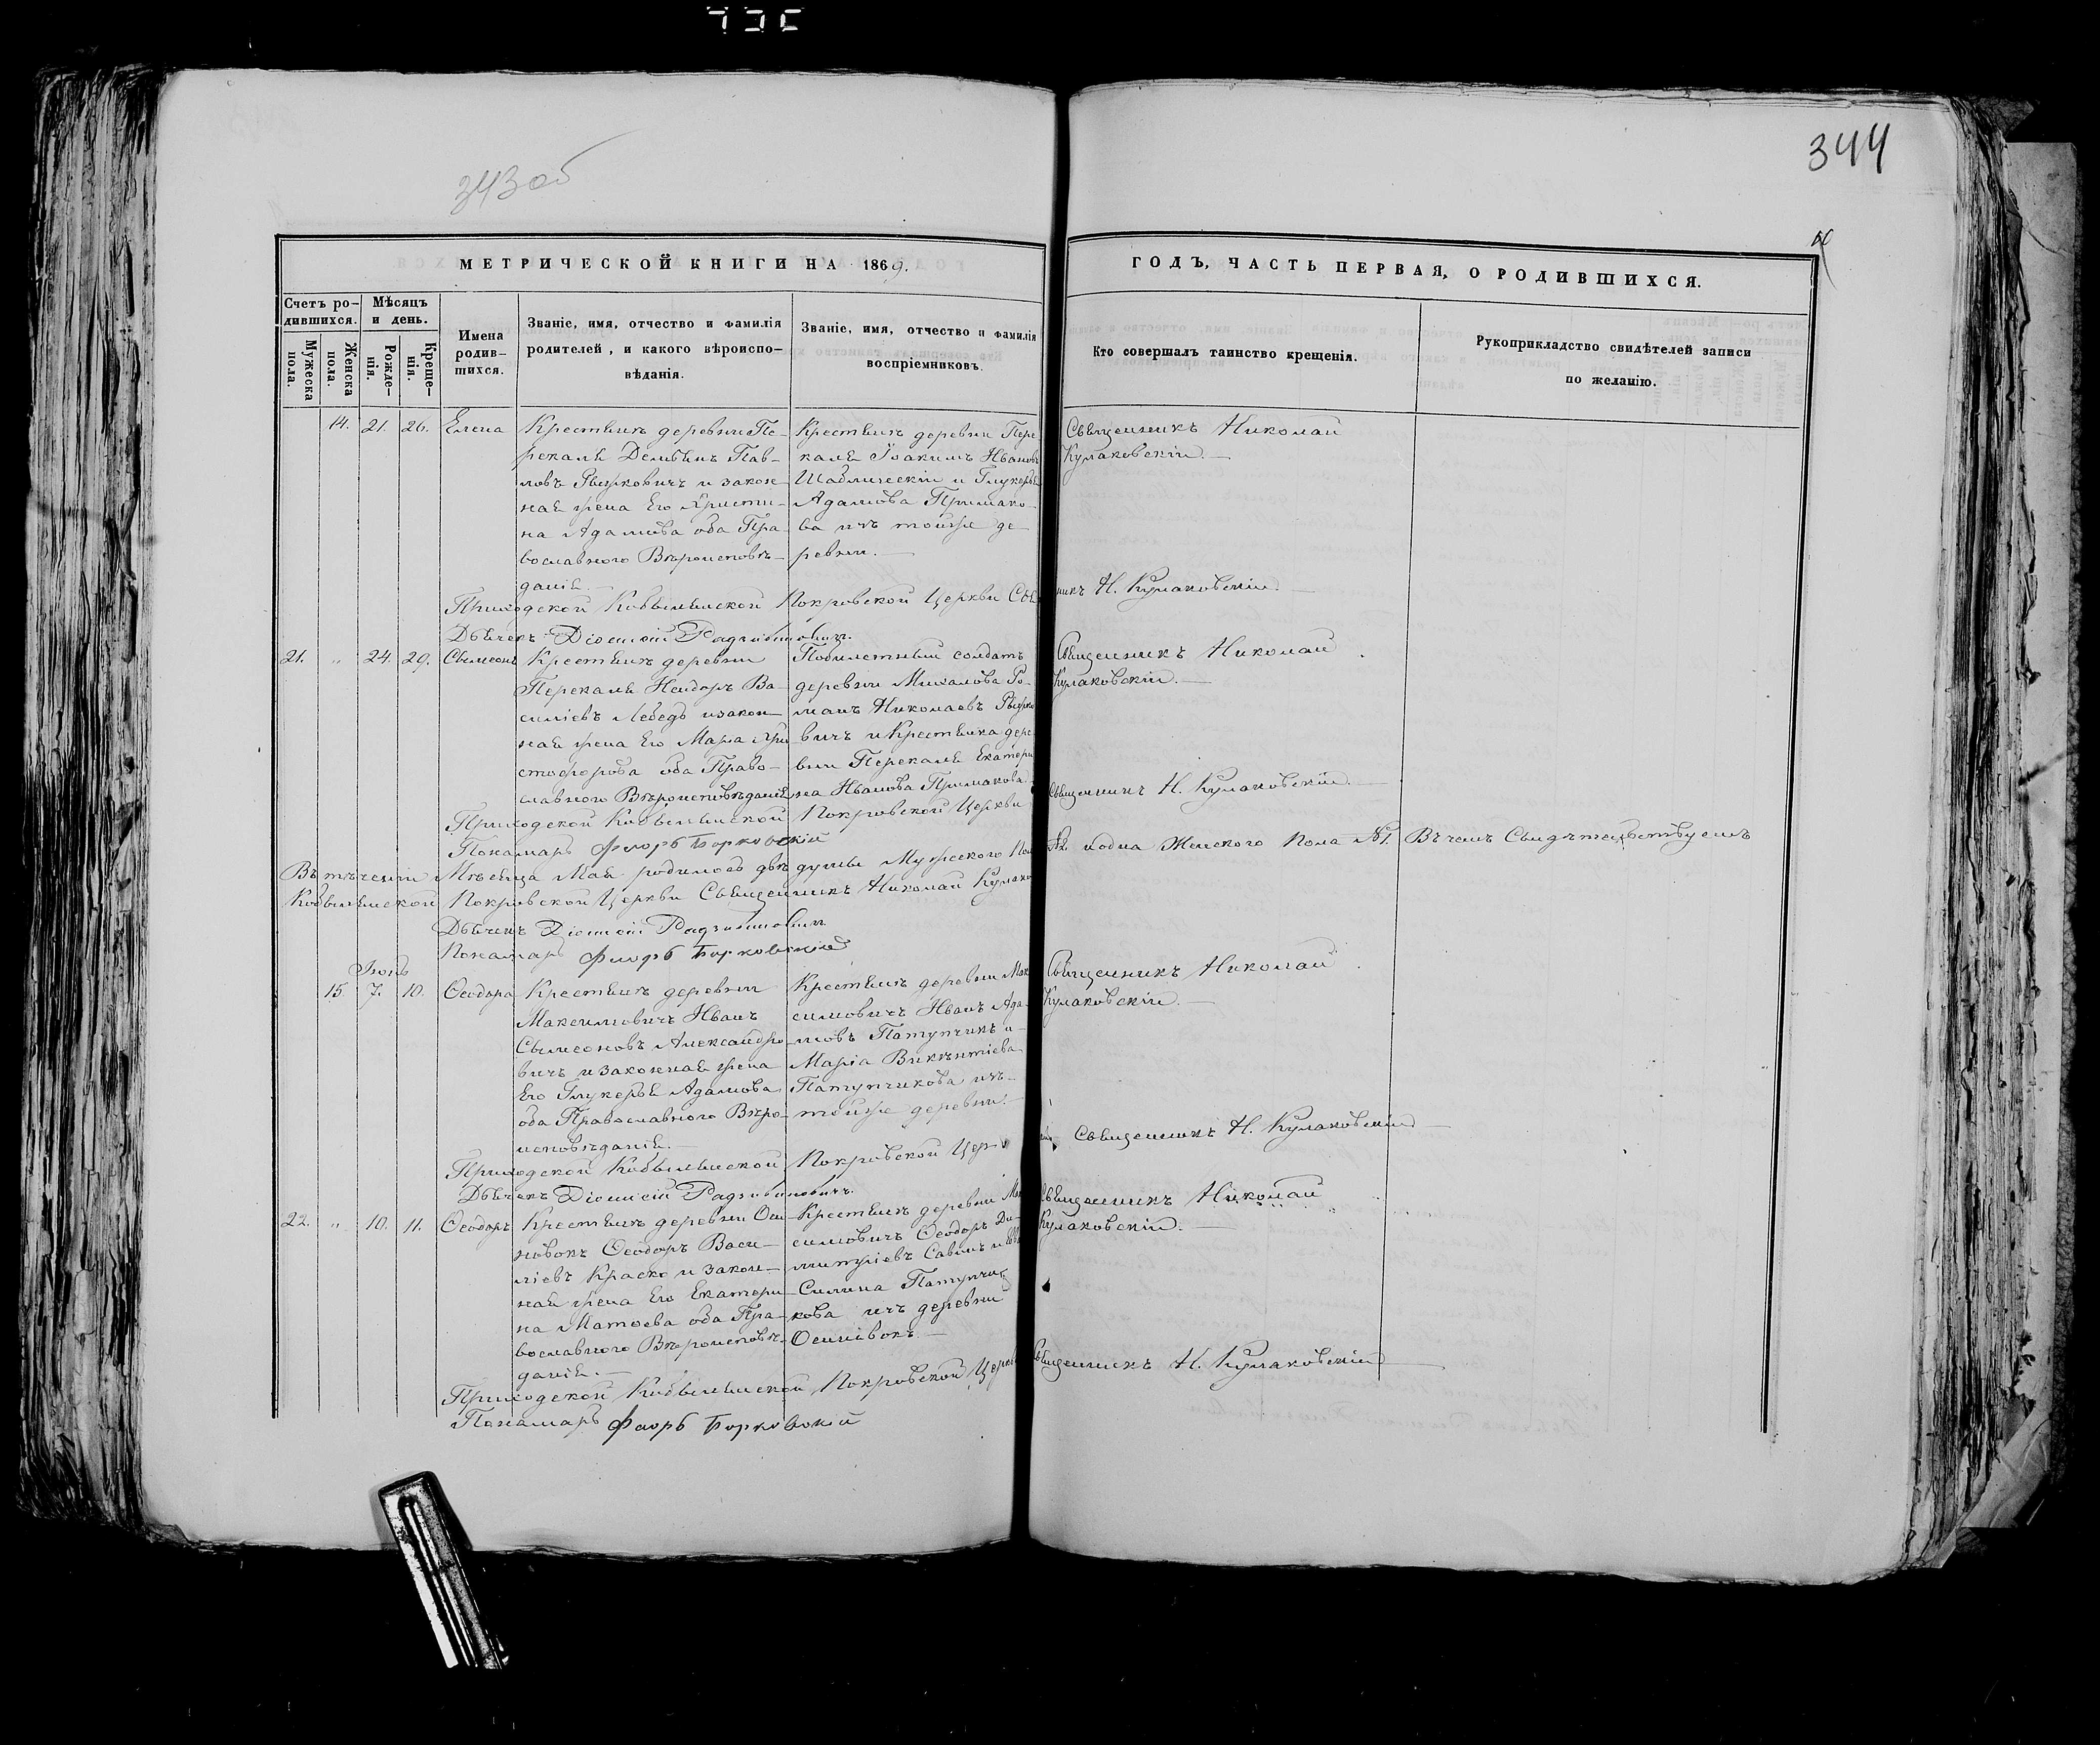 344
343об
МЕТРИЧЕСКОЙ КНИГИ НА 1869.
ГОДЪ, ЧАСТЬ ПЕРВАЯ, О РОДИВШИХСЯ.
Счетъ ро-
дившихся.
Мужеска
пола.
Женска
пола.
Мѣсяцъ
и день.
Рожде-
нія.
Креще-
нія.
Имена
родив-
шихся.
Званіе, имя, отчество и фамилія
родителей, и какого вѣроиспо-
вѣданія.
Званіе, имя, отчество и фамилія
воспріемниковъ.
Кто совершалъ таинство крещенія.
Рукоприкладство свидѣтелей записи
по желанію.
14. 21. 26. Елена
Крестьянъ деревни Пе-
рекаля Демьянъ Пав-
ловъ Рыжковичъ и закон-
ная жена Его Христи-
на Адамова оба Пра-
вославного Вѣроисповѣ-
данія.
Крестьянъ деревни Пере
каля Іоакимъ Ивановъ
и Глукерья
Адамова Примако-
ва изъ тойже де-
ревни.
Священникъ Николай
Кулаковскій.
Приходской Кобыльнской Покровской Церкви Свя никъ Н. Кулаковскій.
Дьячекъ Діонисій Радзивиновичъ.
21. " 24. 29. Сѵмеонъ
Крестьянъ деревни
Перекаля Исидоръ Ва-
силіевъ Лебедь изакон-
ная жена Его Марія Хри-
стофорова оба Право-
славного Вѣроисповѣданія
Побилетный солдатъ
деревни Михалова Ро-
манъ Николаевъ Рыжко
вичъ и Крестьянка дере
вни Перекаля Екатери
на Иванова Примакова
Священникъ Николай
Кулаковскій.
Приходской Кобыльнской Покровской Церкви Священникъ Н. Кулаковскій.
Понамарь Флоръ Борковскій
Въ тѣченіи Мѣсяца Мая родилось двѣ душы Мужеского Пол № иодна Женского Пола №1. Въ чемъ Свидѣтельствуемъ
Кобыльнской Покровской Церкви Священникъ Николай Кулако
Дьячекъ Діонисій Радзивиновичъ
Понамарь Флоръ Борковскій
Іюнь
15. 7. 10. Ѳеодора
Крестьянъ деревни
Максимовичъ Иванъ
Сѵмеоновъ Александро-
вичъ изаконная жена
Его Глукерья Адамова
оба Православного Вѣро-
исповѣданія.
Крестьянъ деревни Мак
симовичъ Иванъ Ада-
мовъ Патупчикъ и
Марія Викѣнтіева
Патупчикова изъ
тойже деревни.
Священникъ Николай
Кулаковскій.
Приходской Кобыльнской Покровской Церк Священникъ Н. Кулаковскій
Дьячекъ Діонисій Радзивиновичъ.
22. " 10. 11. Ѳеодоръ
Крестьянъ деревни Оси-
новокъ Ѳеодоръ Васи-
ліевъ Краско и закон-
ная жена Его Екатери-
на Матѳева оба Пра-
вославного Вѣроисповѣ-
данія.
Крестьянъ деревни Мак
симовичъ Ѳеодоръ Ди-
митріевъ Савонь и
Силина Патупчи
кова изъ деревни
Осиновокъ
Священникъ Николай
Кулаковскій.
Приходской Кобыльнской Покровской Церкви Священникъ Н. Кулаковскій
Понамарь Флоръ Борковскій